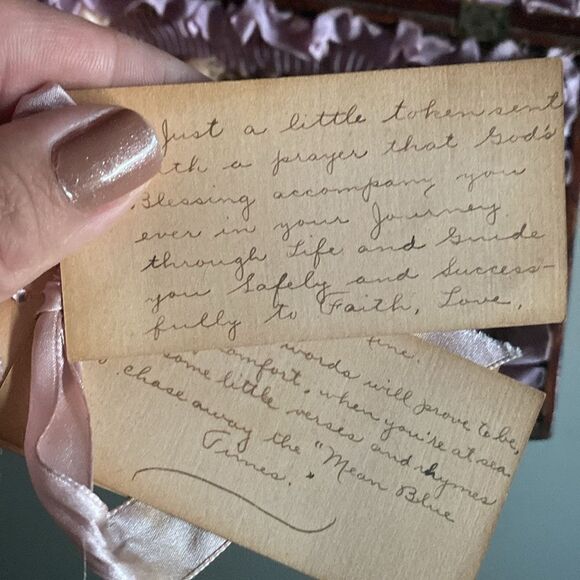 Just a little token sent
th a prayer that God's
Blessing accompany you
ever in your Journey
through Life and Guide
you Safely and Success-
fully to Faith, Love,
words will prove to be,
comfort, when you're at sea
some little verses and rhymes
chase away the "Mean Blue
Times."